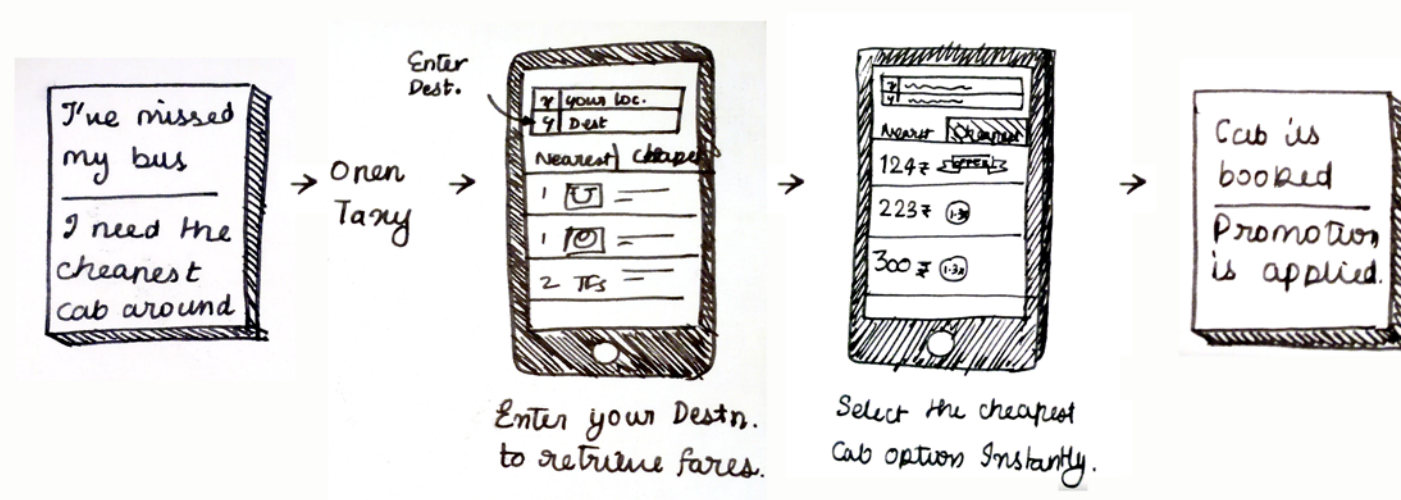 I've missed
my bus
I need the
cheapest
cab around
Open
Taxy
Enter
Dest.
x your loc.
y Dest
Nearest Cheapest
1 U
1 O
2 TFS
Enter your Destn.
to retrieve fares.
x
y
Nearest Cheapest
124₹ OFFER
223₹ 1.3x
300₹ 1.3x
Select the cheapest
Cab option Instantly.
Cab is
booked
Promotion
is applied.